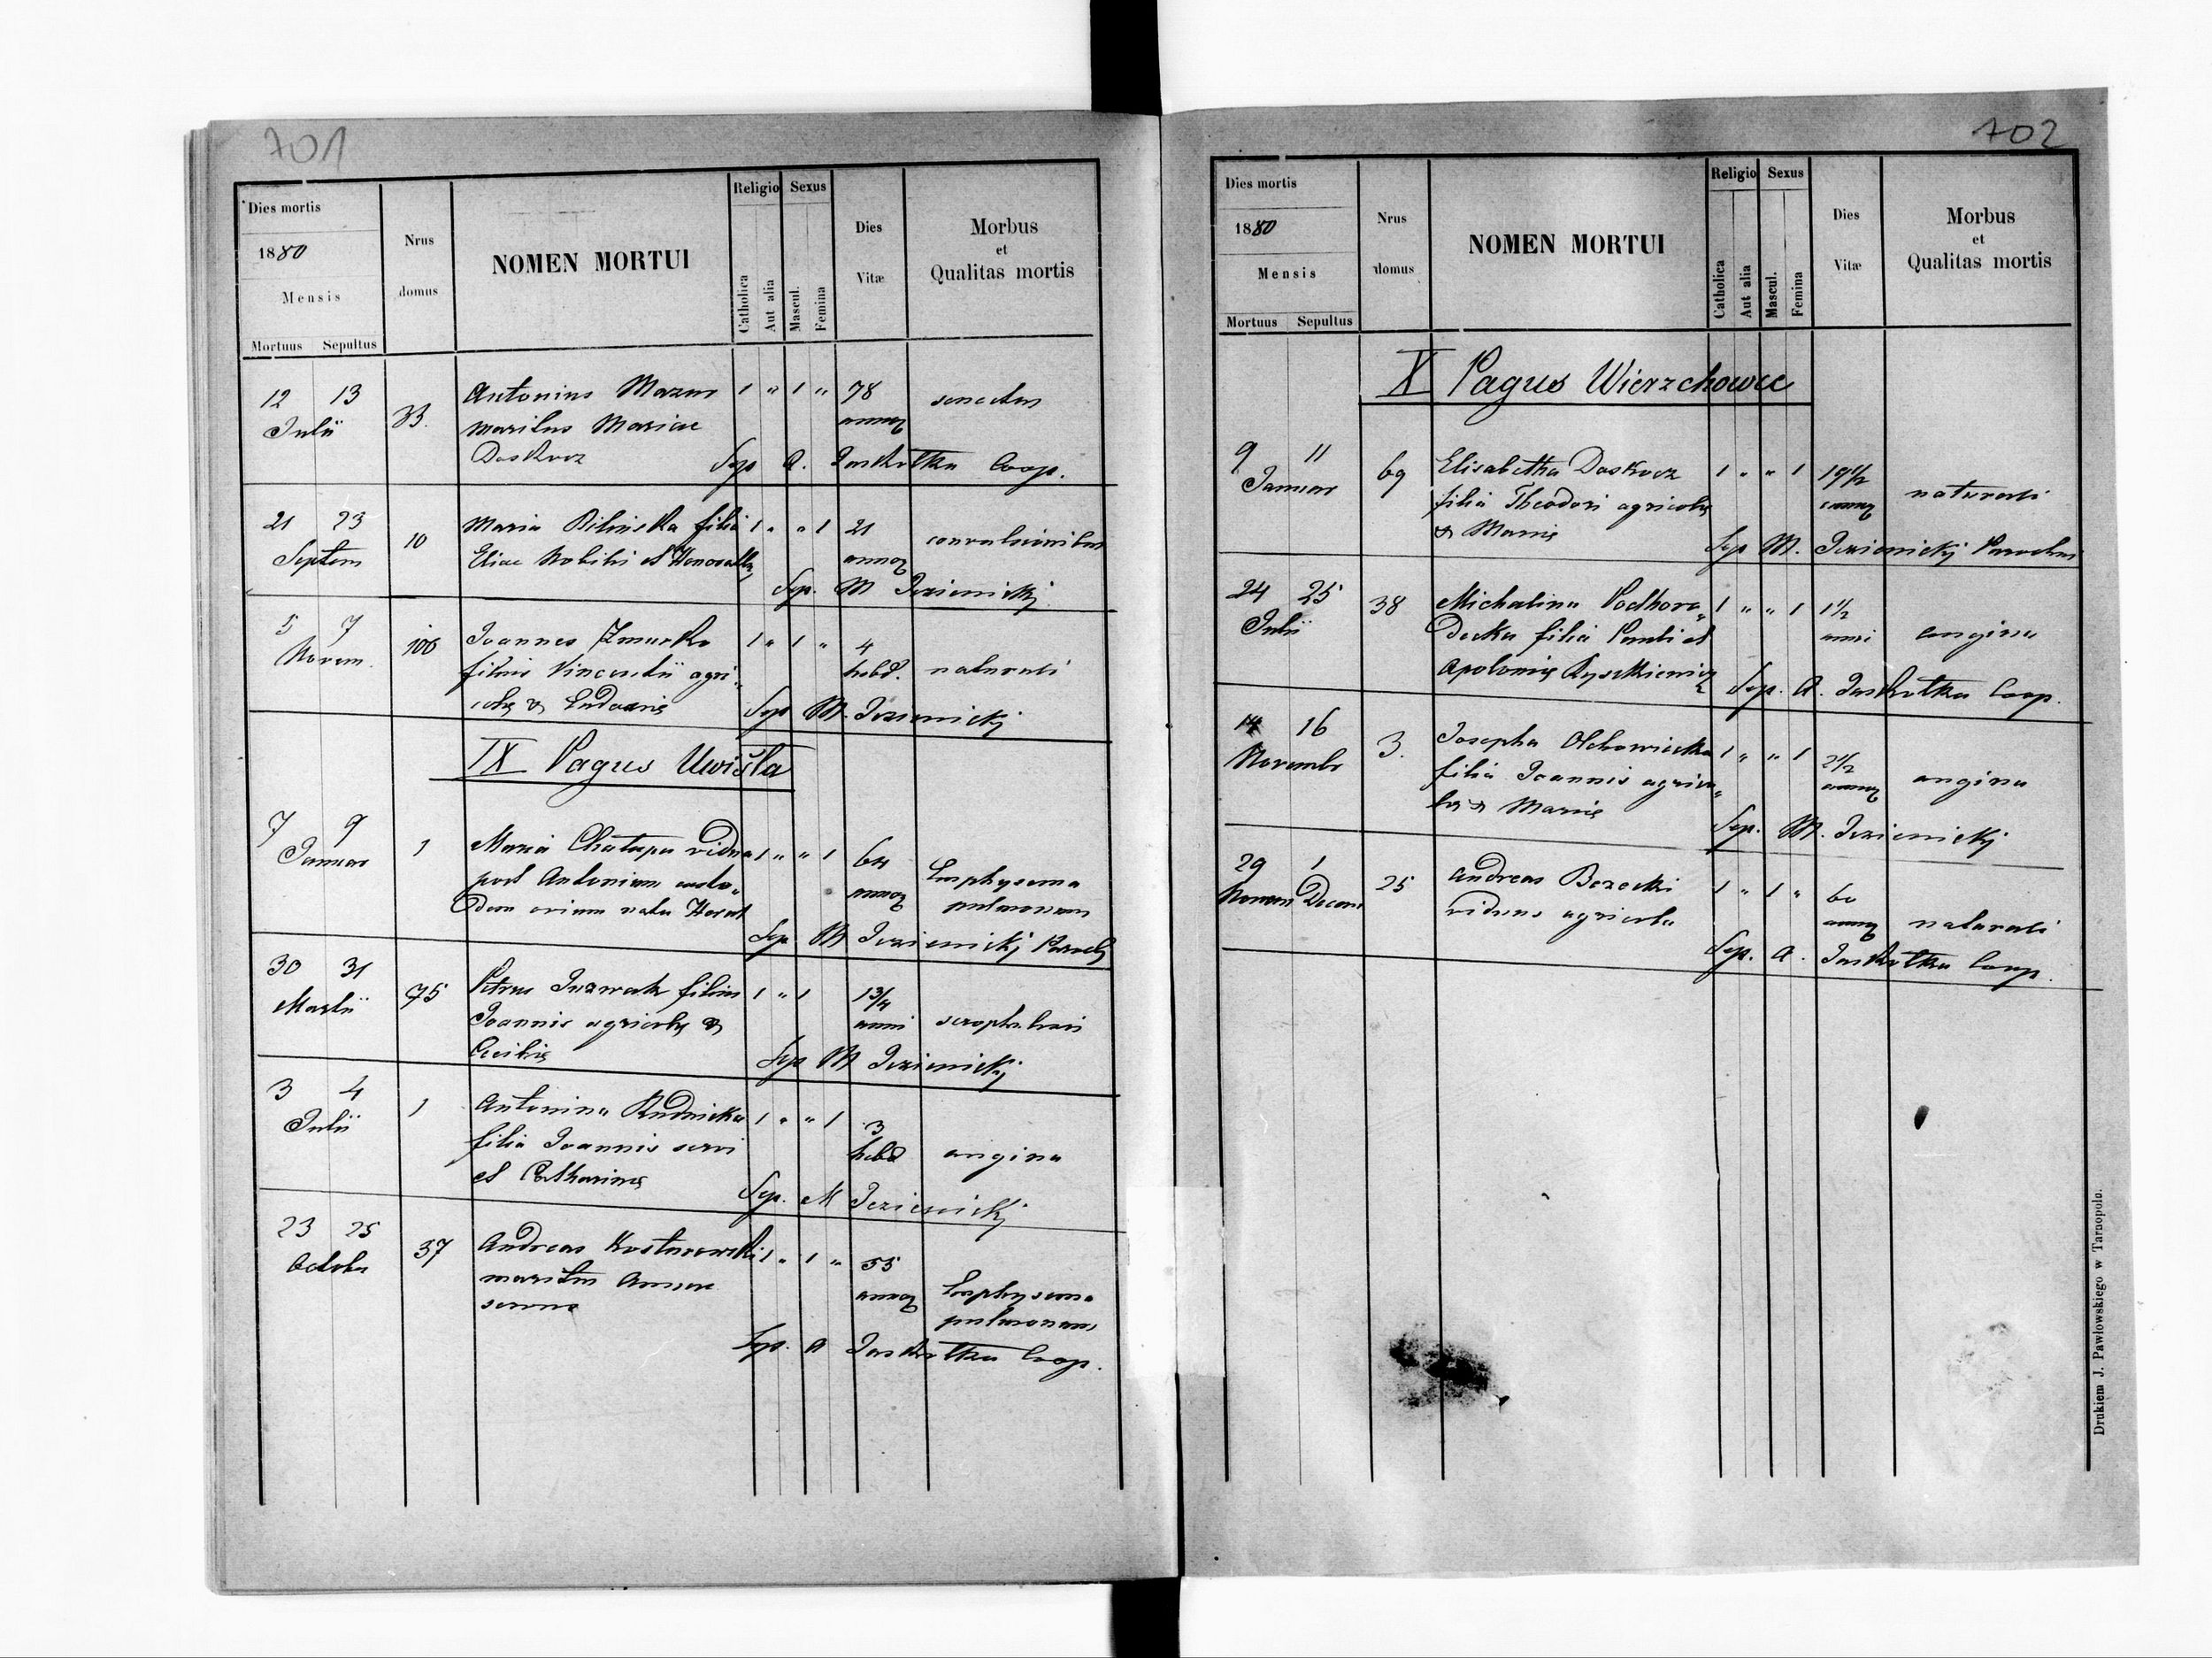 701
Dies mortis
1880
Mensis
Mortuus Sepultus
Nrus
domus
NOMEN MORTUI
Religio
Catholica
Aut alia
Sexus
Mascul.
Femina
Dies
Vitæ
Morbus
et
Qualitas mortis
12 13
Julii
33.
Antonius Mazur
maritus Mariae
Doskocz
1 " 1 "
78
annoz
senectus
Sep A. Jaskółka Coop.
21 23
Septem
10
Maria Bilinska filia
Eliae Nobilis et
1 " " 1
21
annoz
convulsionibus
Sep. M Jezienicki
5 7
Novem.
106
Joannes Zmurko
filius Vincentii agri"
colę &
1 " 1 "
4
hebd.
naturali
Sep M. Jezienicki
IX Pagus Uwisła
7 9
Januar
1
Maria Chałupa vidua
post Antonium custo"
dem
1 " " 1
64
annoz
Emphysema
pulmonum
Sep M Jezienicki Paroch
30 31
Martii
75
Petrus filius
Joannis agricolę &
Cecilię
1 " 1
1 3/4
anni
Sep M Jezienicki
3 4
Julii
1
Antonina Rudnicka
filia Joannis servi
et Catharinę
1 " " 1
3
hebd
angina
Sep. M Jezienicki
23 25
Octobr
37
Andreas
maritus Annae
servus
1 " 1 "
55
annoz
Emphysema
pulmonum
Sep. A Jaskółka Coop.
702
Dies mortis
1880
Mensis
Mortuus Sepultus
Nrus
domus
NOMEN MORTUI
Religio
Catholica
Aut alia
Sexus
Mascul.
Femina
Dies
Vitæ
Morbus
et
Qualitas mortis
X Pagus Wierzchowce
9 11
Januar
69
Elisabetha Doskocz
filia Theodori agricolę
& Marię
1 " " 1
19 1/2
annoz
naturali
Sep M. Jezienicki Parochus
24 25
Julii
38
Michalina Podhoro"
decka filia Pauli et
Apolonię
1 " " 1
1 1/2
anni
angina
Sep. A. Jaskółka Coop.
14 16
Novembr
3.
Josepha Olchowiecka
filia Joannis agrico"
lę & Marię
1 " " 1
2 1/2
annoz
angina
Sep. M. Jezienicki
29 1
Novem Decem
25
Andreas Bezecki
viduus agricola
1 " 1 "
60
annoz
naturali
Sep. A. Jaskółka Coop.
Drukiem J. Pawłowskiego w Tarnopolu.